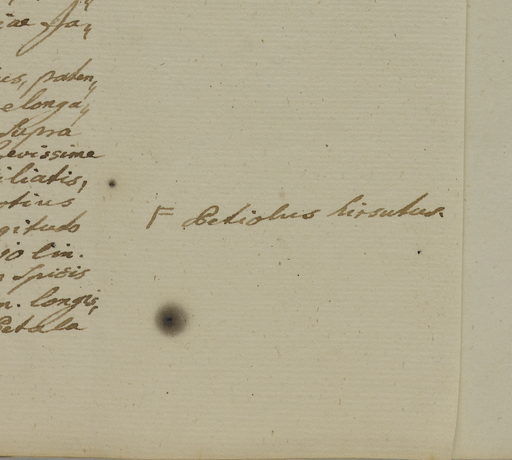 iae fa„
us, paten„
elonga„
Supra
levissime
iliatis,
otius
gitudo
lin.
Spicis
longis,
Petala
F Petiolus hirsutus.